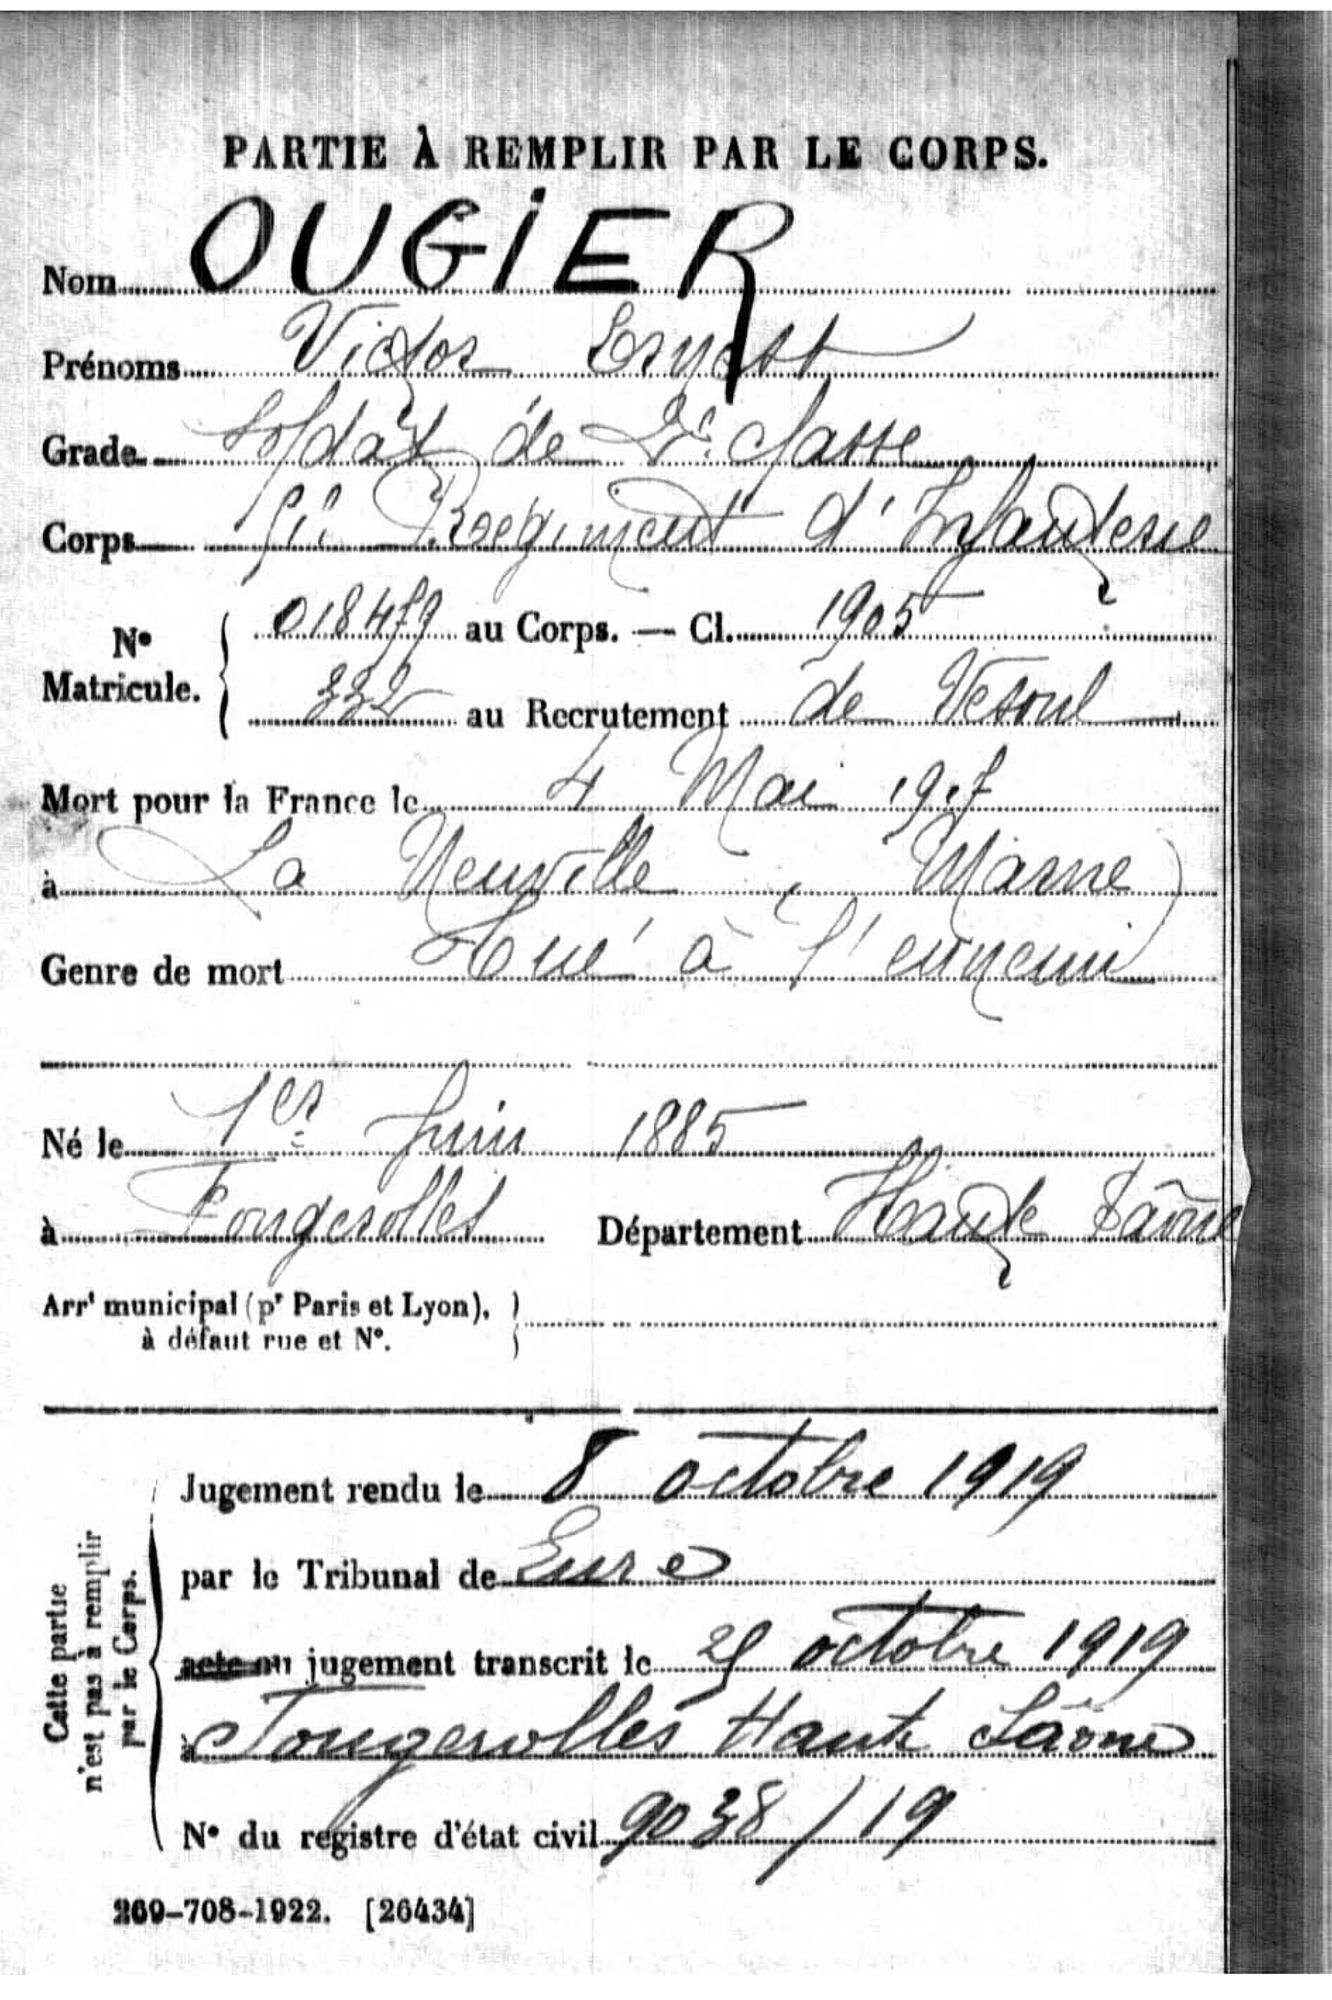 PARTIE À REMPLIR PAR LE CORPS.
Nom OUGIER
Prénoms Victor Ernest
Grade Soldat de 2e classe
Corps Régiment d'Infanterie
N° Matricule. { 018479 au Corps. — Cl. 1905
332 au Recrutement de Vesoul
Mort pour la France le 4 Mai 1917
à La Neuville (Marne)
Genre de mort Tué à l'ennemi
Né le 1er Juin 1885
à Fougerolles Département Haute Saône
Arrt municipal (pr Paris et Lyon),
à défaut rue et N°.
Cette partie
n'est pas à remplir
par le Corps.
Jugement rendu le 8 octobre 1919
par le Tribunal de Lure
acte ou jugement transcrit le octobre 1919
à Fougerolles Haute Saône
N° du registre d'état civil 9038/19
269-708-1922. [26434]